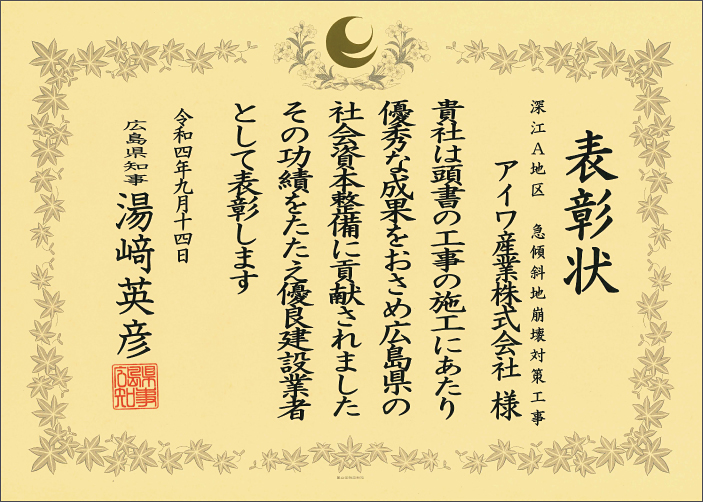 表彰状
深江A地区 急傾斜地崩壊対策工事
アイワ産業株式会社 様
貴社は頭書の工事の施工にあたり
優秀な成果をおさめ広島県の
社会資本整備に貢献されました
その功績をたたえ優良建設業者
として表彰します
令和四年九月十四日
広島県知事 湯﨑英彦